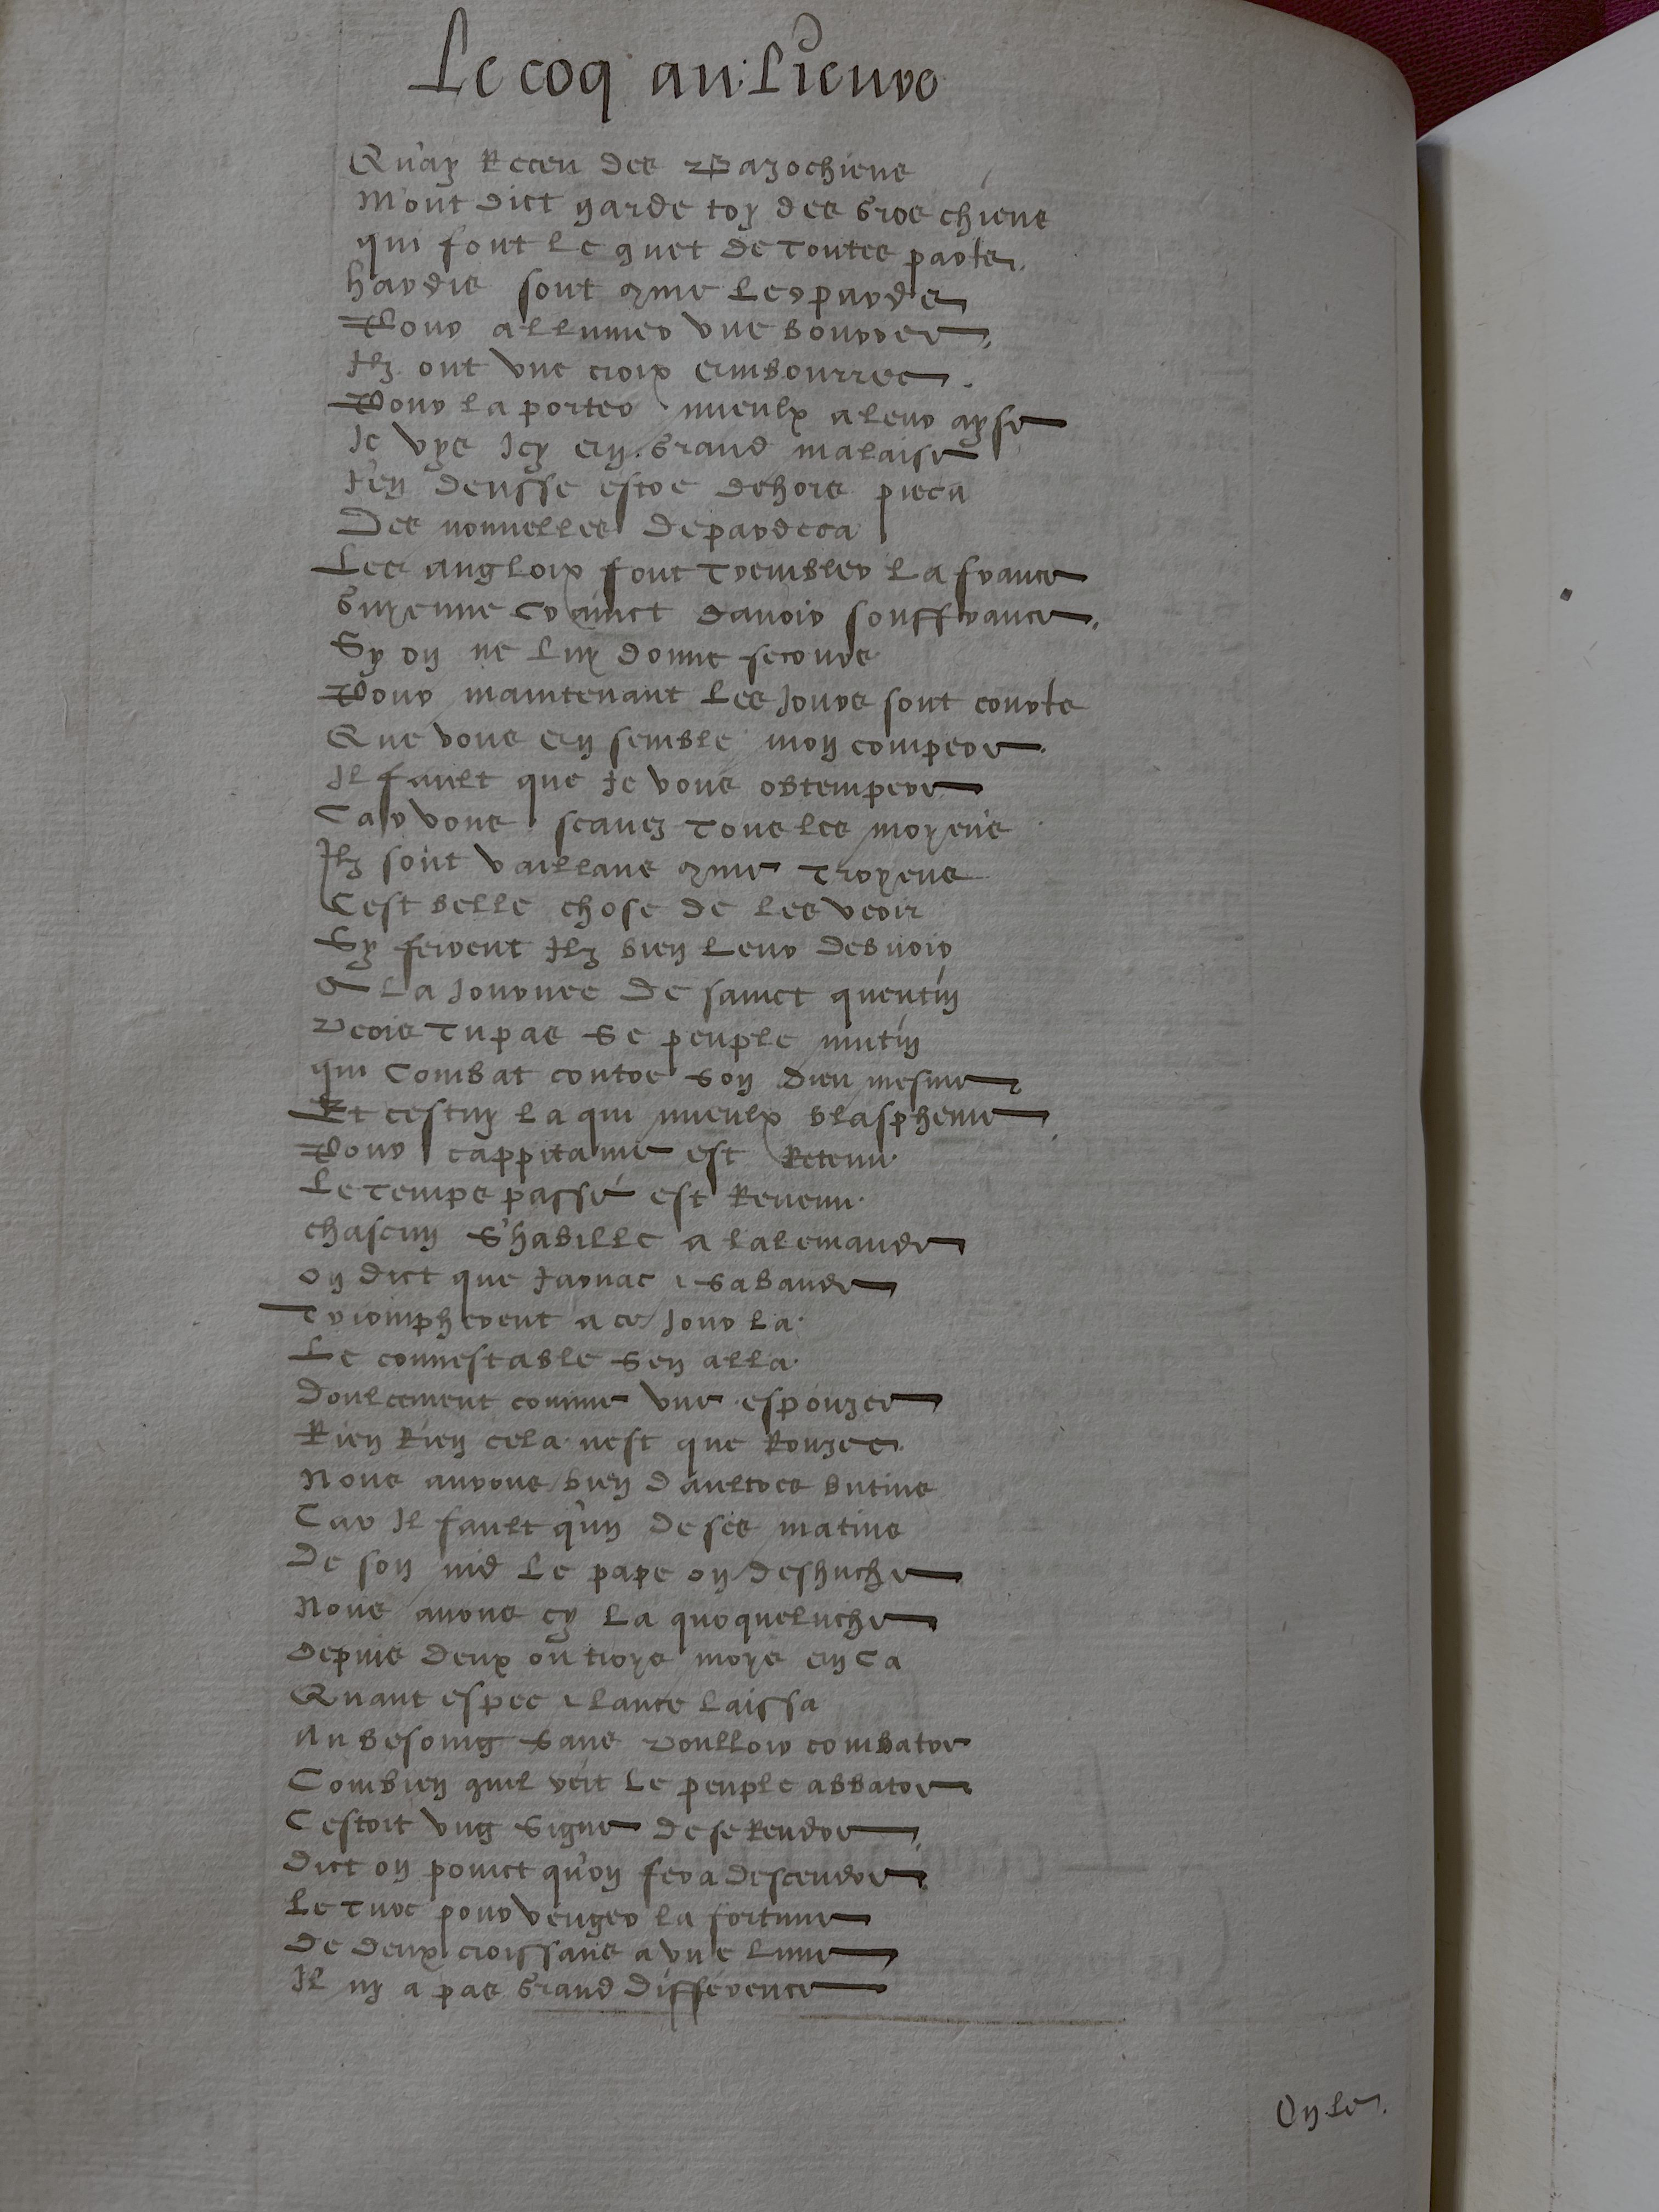 Le coq au: Lieure
Qu'ay Receu des Bazochiens
M'ont dict garde toy des gros chiens
qui font le guet de toutes partz
hardis sont comme Leopardz
Pour allumer vne bourree
Ilz ont vne croix embourree
Pour la porter mieulx a leur ayse
Je vys Icy en grand malaise
J'en deusse estre dehors pieca
Des nouuelles depardeca
Les anglois font trembler la france
Guyenne crainct dauoir souffrance
Sy on ne luy donne secours
Pour maintenant les Jours sont courts
Que vous en semble mon compere
Il fault que Je vous obtempere
Car vous scauez tous les moyens
Ilz sont vaillans comme Troyens
Cest belle chose de les veoir
Sy feirent Ilz bien leur debuoir
A la Journee de sainct quentin
Veois Tu pas se peuple mutin
qui Combat contre son dieu mesme
Et cestuy la qui mieulx blaspheme
Pour cappitaine est Retenu
Le temps passé est Reuenu
chascun S'habille a lalemande
on dict que Jarnac & sabande
Triompherent a ce Jour la
Le connestable sen alla
Doulcement comme vne espouzee
Rien Rien cela nest que Rouzee
Nous aurons bien daultres butins
Car Il fault qu'un de ses matins
De son nid le pape on deshuche
Nous auons cy la quoqueluche
Depuis deux ou troys moys en Ca
Quant espee & lance laissa
Au besoing sans voulloir combatre
Combien quil veit le peuple abbatre
Cestoit vng signe de se Rendre
Dict on poinct qu'on fera descendre
Le Turc pour venger la fortune
De deux croissans a vne lune
Il ny a pas grand différence
On le